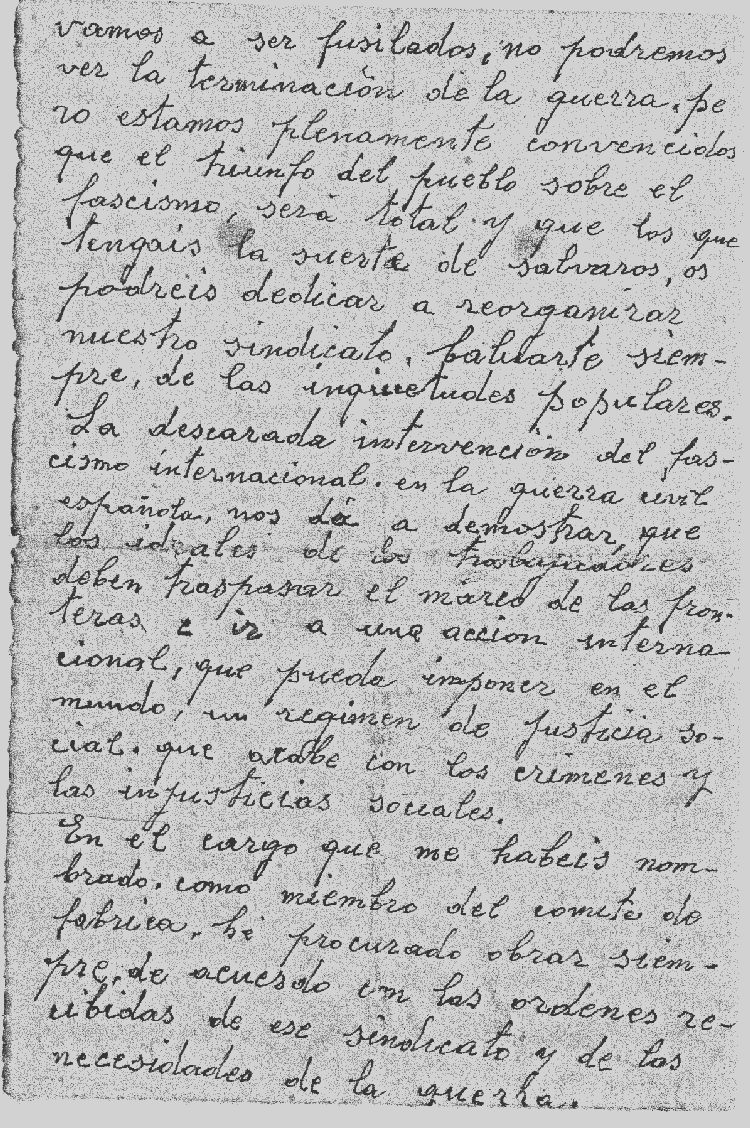 vamos a ser fusilados, no podremos
ver la terminación de la guerra. pe
ro estamos plenamente convencidos
que el triunfo del pueblo sobre el
fascismo, será total. y que los que
tengais la suerte de salvaros, os
podreis dedicar a reorganizar
nuestro sindicato, baluarte siem-
pre, de las inquietudes populares.
La descarada intervención del fas-
cismo internacional. en la guerra civil
española, nos dá a demostrar, que
los ideales de los trabajadores
deben traspasar el marco de las fron-
teras e ir a una accion interna-
cional, que pueda imponer en el
mundo, un regimen de justicia so-
cial. que acabe con los crimenes y
las injusticias sociales.
En el cargo que me habeis nom-
brado. como miembro del comite de
fabrica, he procurado obrar siem-
pre, de acuerdo con las ordenes re-
cibidas de ese sindicato y de las
necesidades de la guerra.